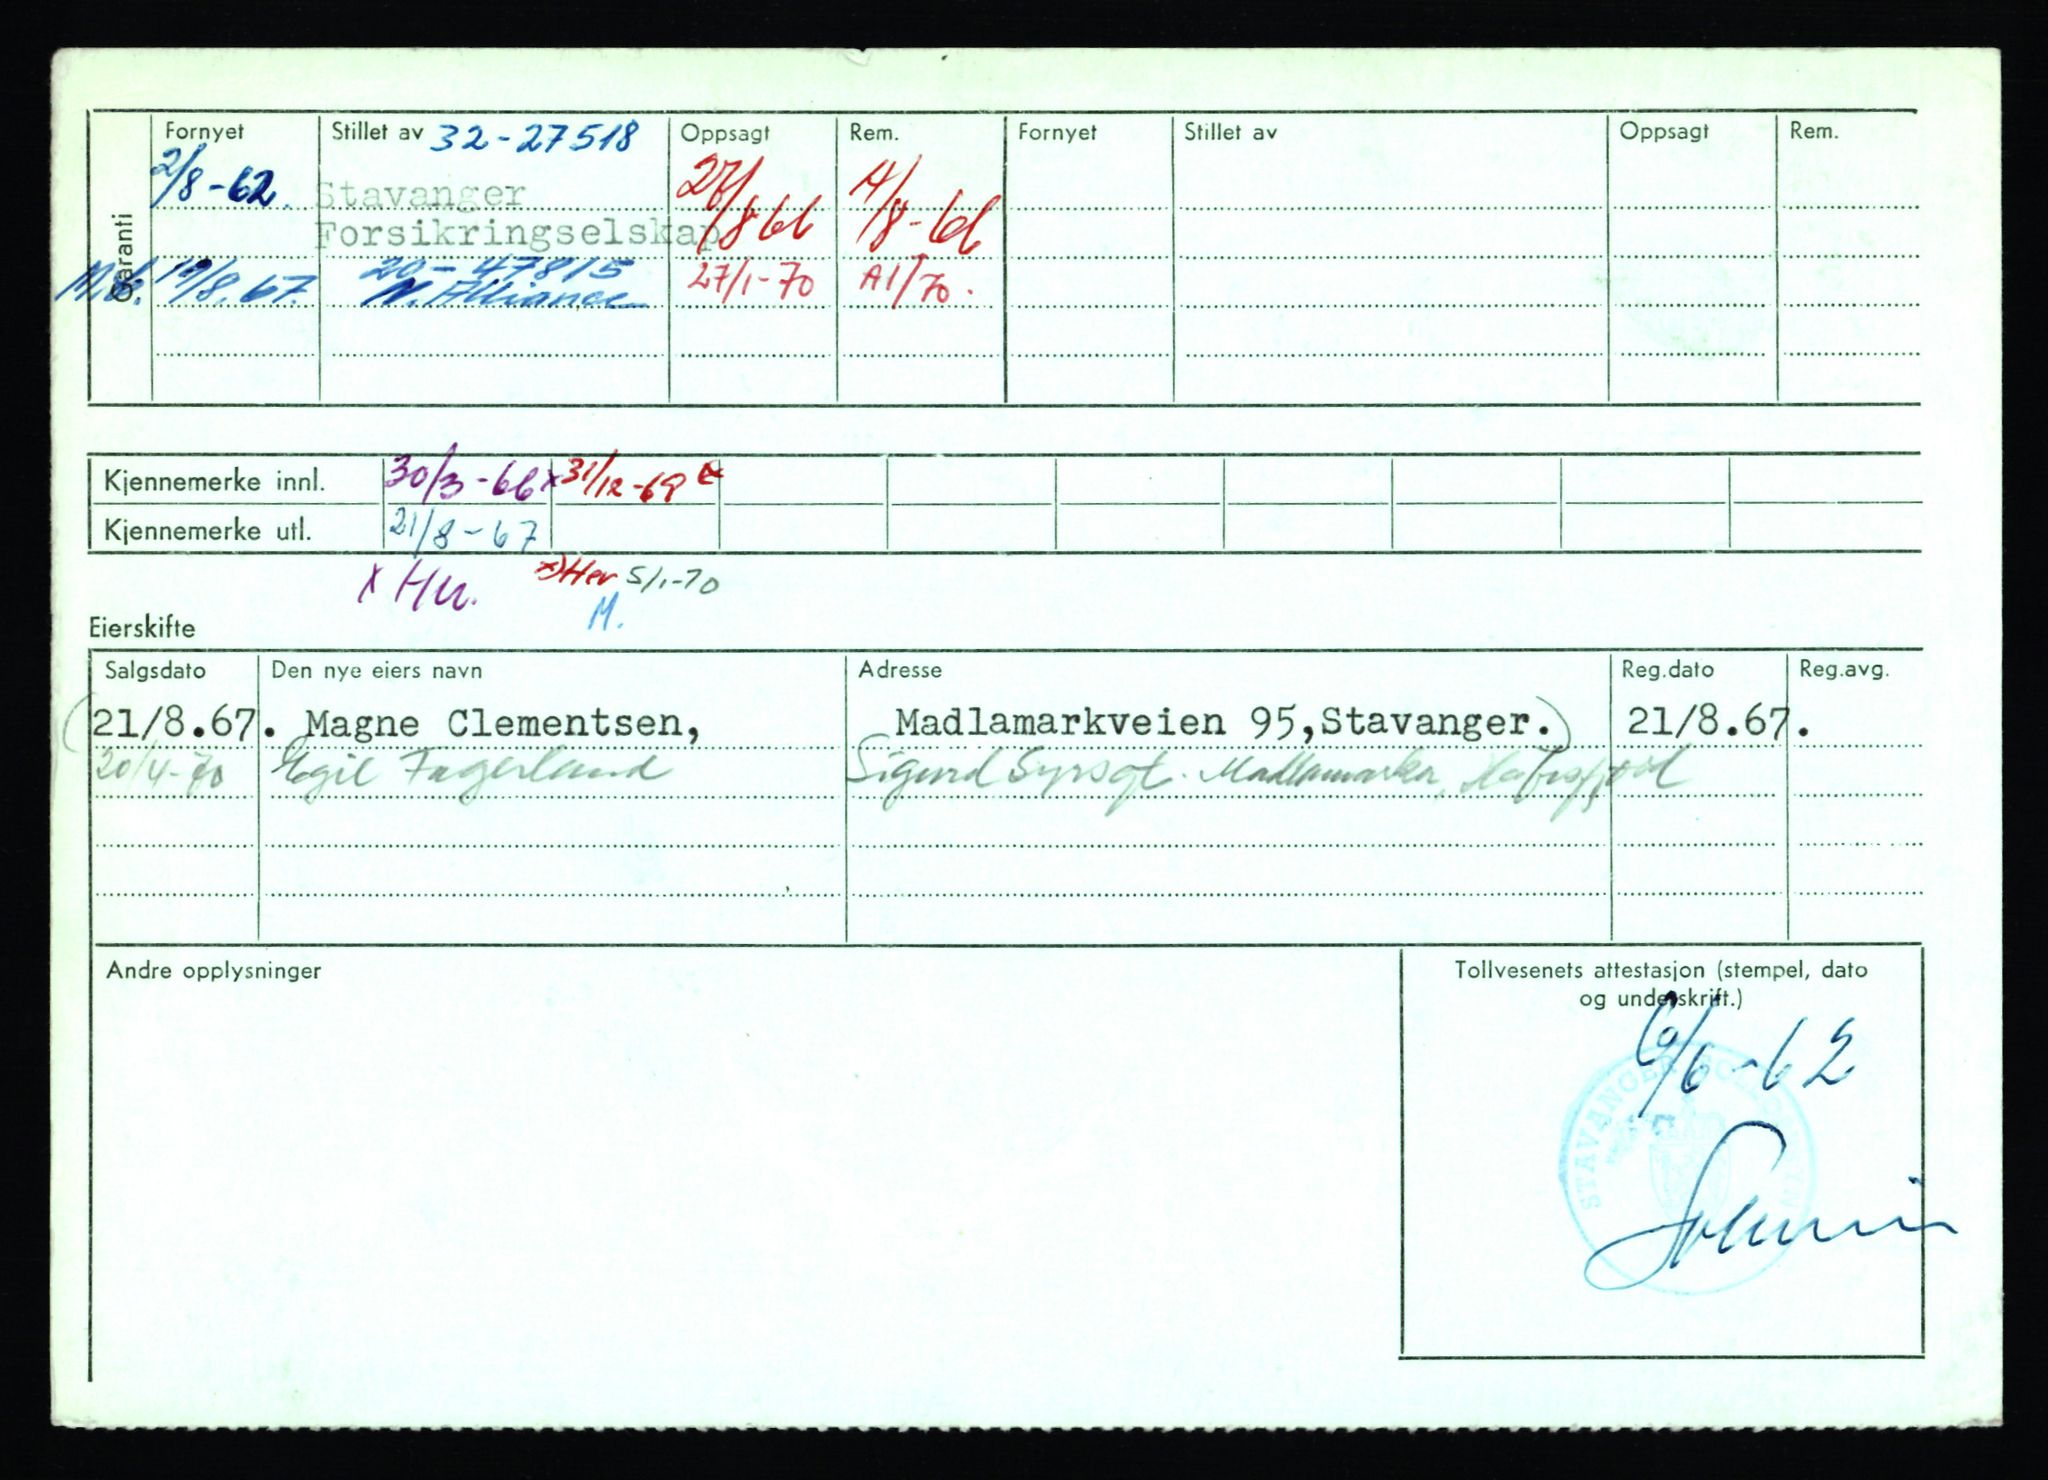 Garanti
Fornyet Stillet av 32-27518 Oppsagt Rem. Fornyet Stillet av Oppsagt Rem.
2/8-62. Stavanger
Forsikringselskap /8 66 /8-66
20-47815
19/8.67. N. Alliance 27/1-70 A1/70.
Kjennemerke innl. 30/3-66 x 31/12-69 x
Kjennemerke utl. 21/8-67
x Her. x) Her 5/1-70
M.
Eierskifte
Salgsdato Den nye eiers navn Adresse Reg.dato Reg.avg.
(21/8.67. Magne Clementsen, Madlamarkveien 95,Stavanger.) 21/8.67.
20/4-70 Egil Fagerland Sigurd Syrsgt. Madlamarka, Hafrsfjord
Andre opplysninger
Tollvesenets attestasjon (stempel, dato
og underskrift.)
6/6-62
STAVANGER